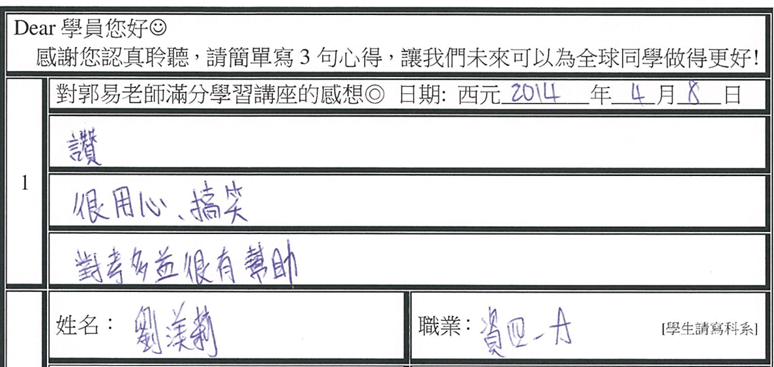 Dear 學員您好☺
感謝您認真聆聽，請簡單寫 3 句心得，讓我們未來可以為全球同學做得更好!
對郭易老師滿分學習講座的感想◎ 日期: 西元 2014 年 4 月 8 日
1
讚
很用心、搞笑
對考多益很有幫助
姓名： 劉渼莉 職業： 資四-A [學生請寫科系]